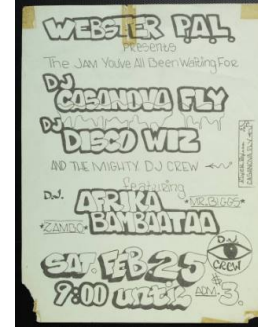 WEBSTER P.A.L.
Presents
The JAM You've All Been Waiting For
DJ
CASANOVA FLY
DJ
DISCO WIZ
AND THE MIGHTY DJ CREW
featuring
D.J.
AFRIKA
BAMBAATAA
*MR. BIGGS*
*ZAMBO*
D.J.
CREW
SAT. FEB 25
9:00 UNTIL
ADM. $3.